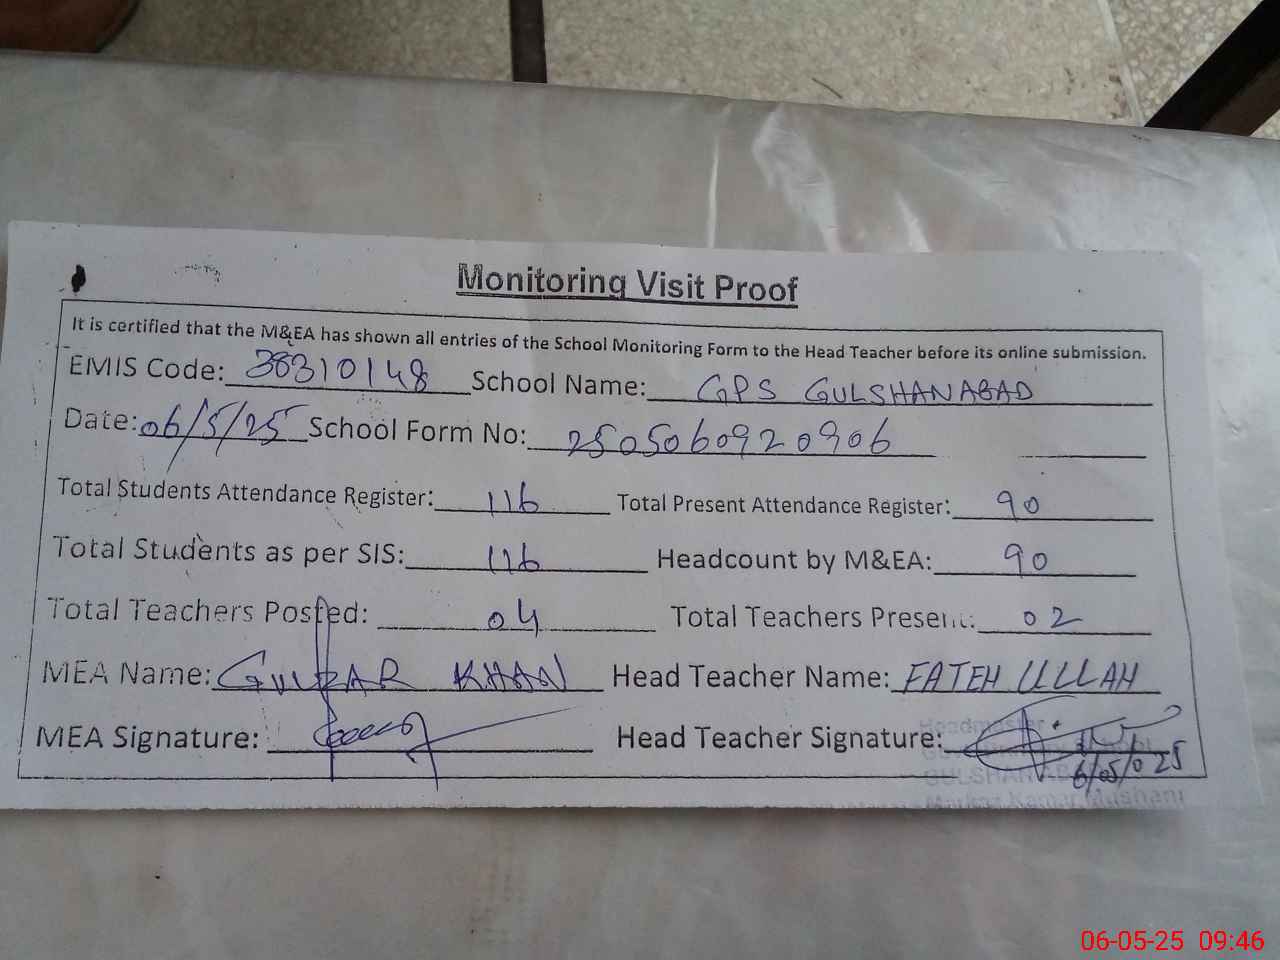 Monitoring Visit Proof
It is certified that the M&EA has shown all entries of the School Monitoring Form to the Head Teacher before its online submission.
EMIS Code: 38310148 School Name: GPS GULSHANABAD
Date: 06/5/25 School Form No: 2505060920906
Total Students Attendance Register: 116 Total Present Attendance Register: 90
Total Students as per SIS: 116 Headcount by M&EA: 90
Total Teachers Posted: 04 Total Teachers Present: 02
MEA Name: GULZAR KHAN Head Teacher Name: FATEH ULLAH
MEA Signature: Head Teacher Signature:
Headmaster
GULSHANABA
Markaz Kamar Mushani
06-05-25 09:46